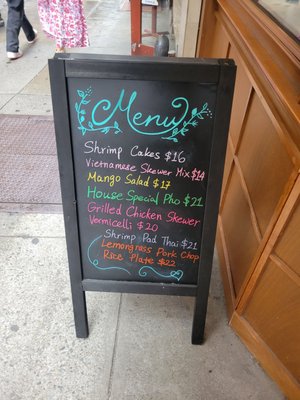 Menu
Shrimp Cakes $16
Vietnamese Skewer Mix $14
Mango Salad $17
House Special Pho $21
Grilled Chicken Skewer
Vermicelli $20
Shrimp Pad Thai $21
Lemongrass Pork Chop
Rice Plate $22